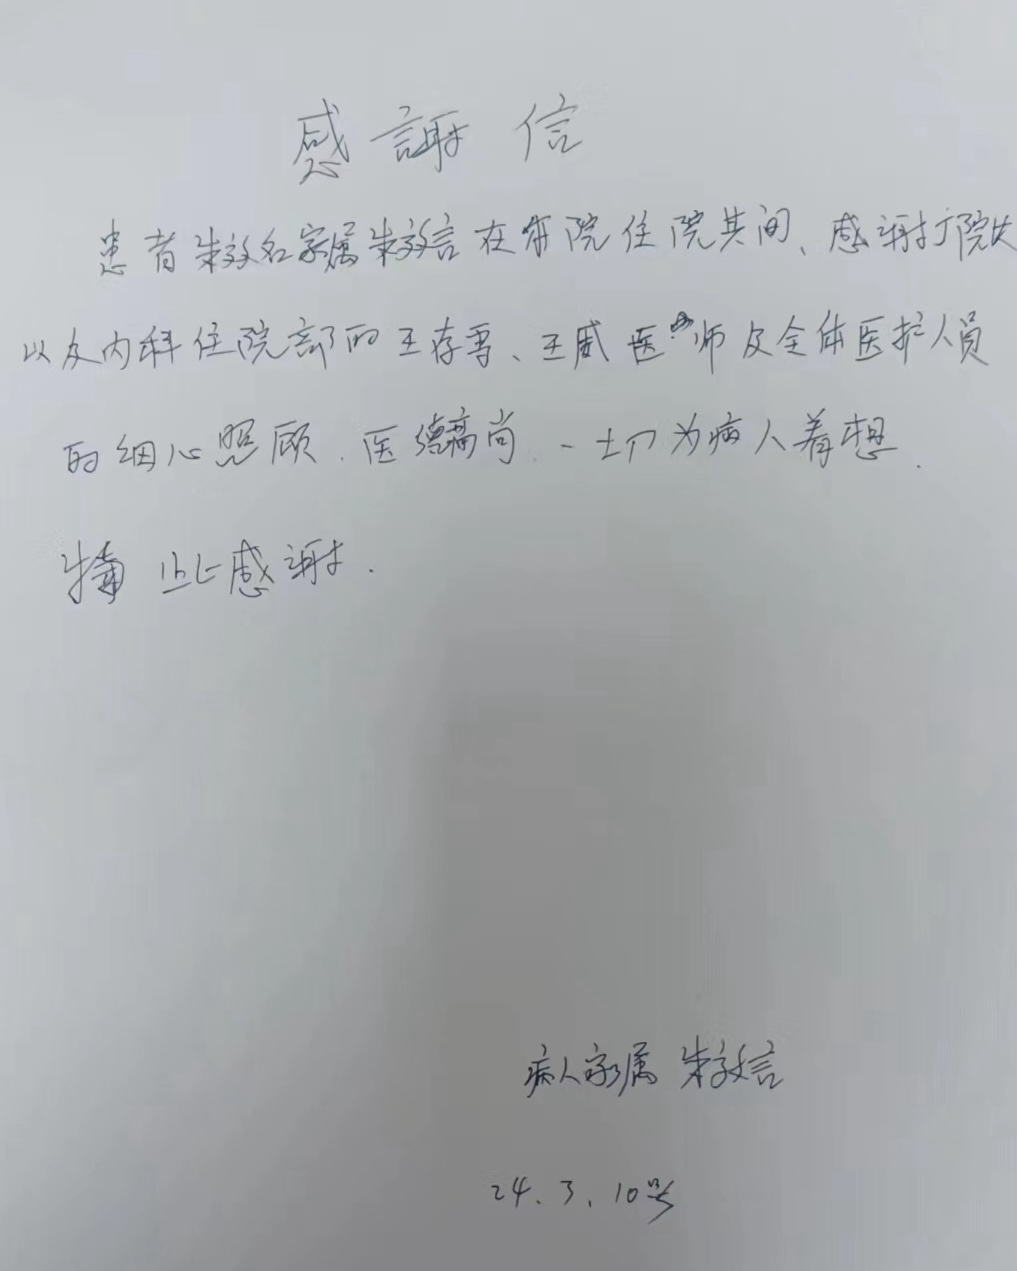 感謝信
患者朱效名家属朱效言在你院住院共间、感谢打院
以及内科住院部的王存香、王威医师及全体医护人员
的细心照顾.医德高尚.一切为病人着想.
特此感谢.
病人家属 朱效言
24.3.10号